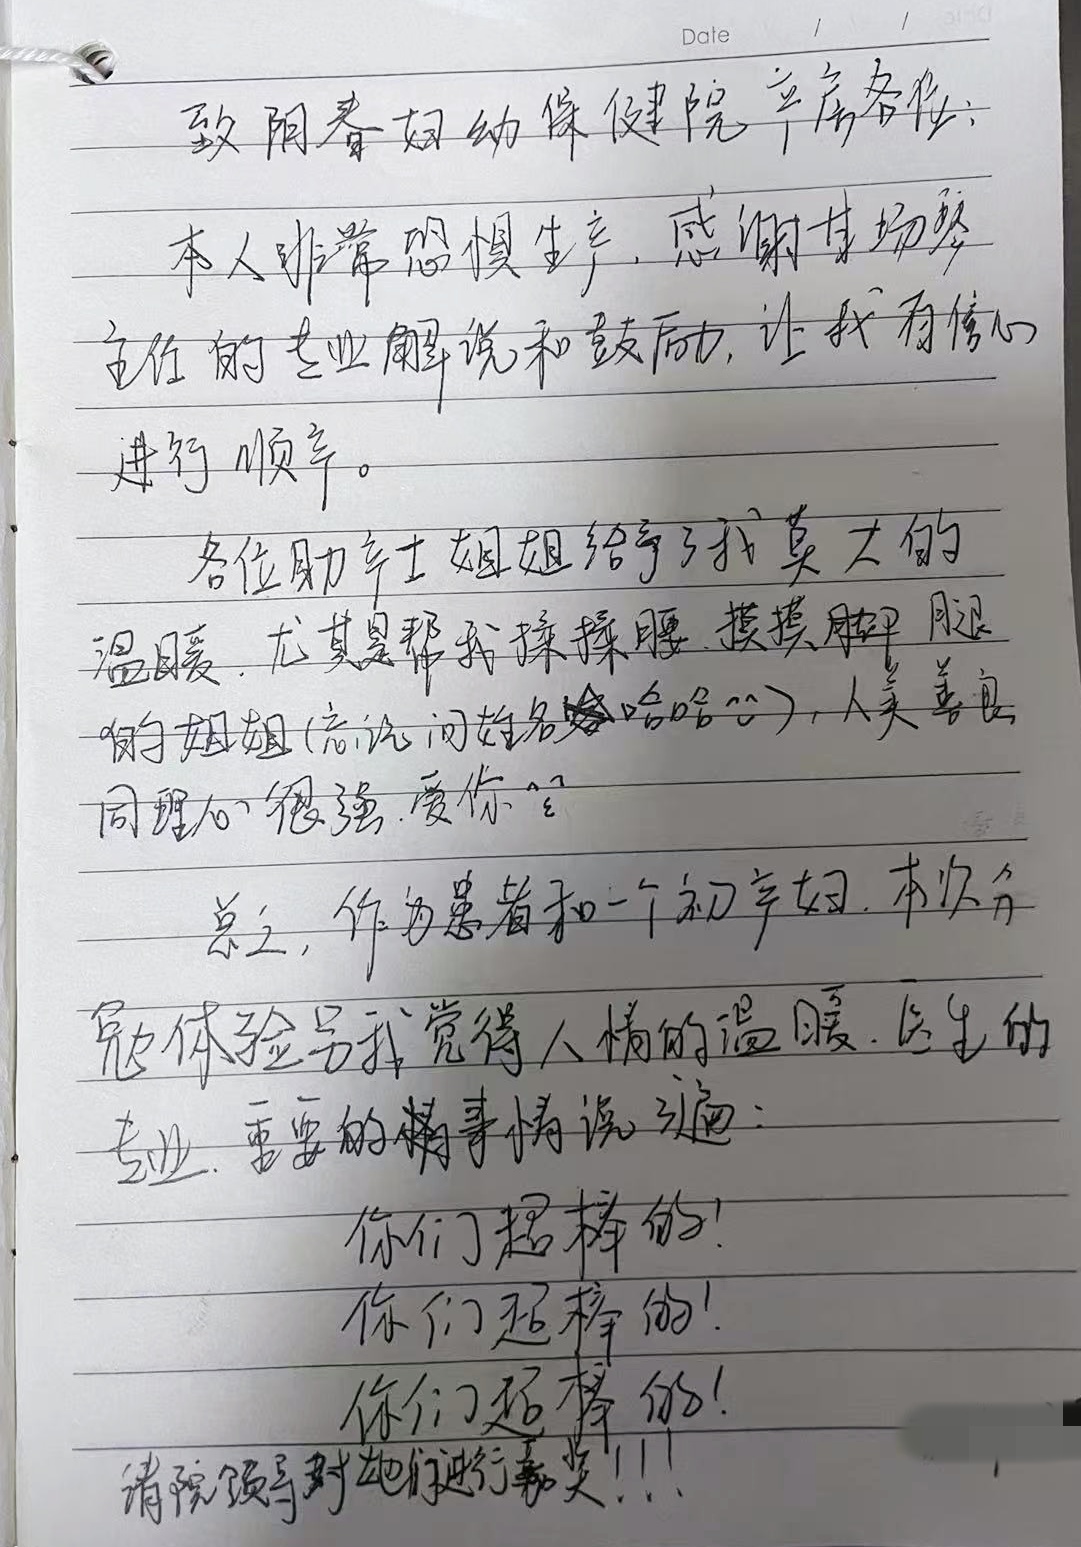 Date / /
致阳春妇幼保健院产房各位:
本人非常恐惧生产,感谢甘场琴
主任的专业解说和鼓励,让我有信心
进行顺产。
各位助产士姐姐给予了我莫大的
温暖.尤其是帮我揉揉腰.摸摸脚腿
的姐姐(忘记问姓名 哈哈),人美善良
同理心很强.爱你
总之,作为患者和一个初产妇.本次分
娩体验另我觉得人情的温暖.医生的
专业.重要的事情说3遍:
你们超棒的!
你们超棒的!
你们超棒的!
请院领导对她们进行嘉奖!!!